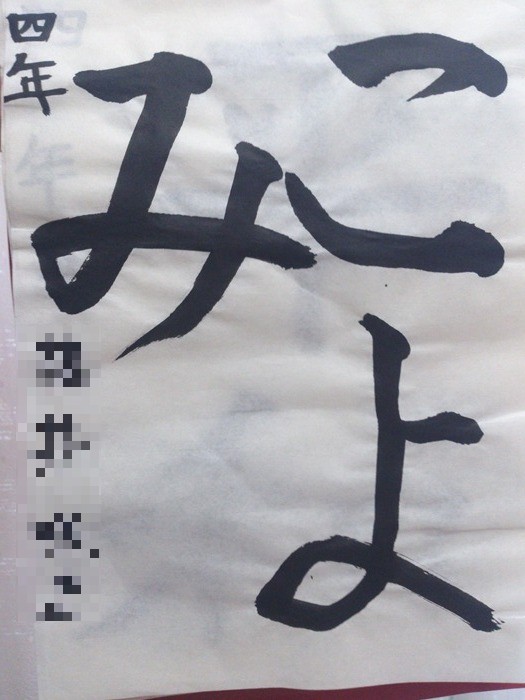 こよ
み
四年